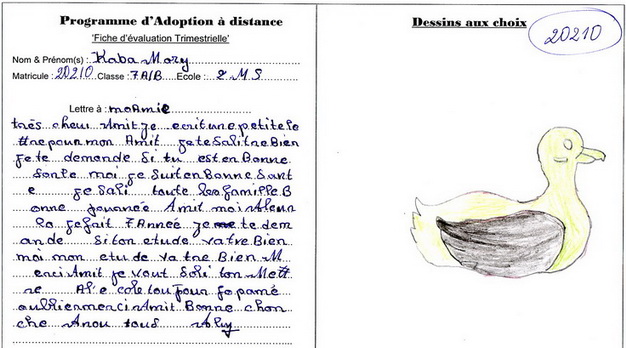 Programme d'Adoption à distance
'Fiche d'évaluation Trimestrielle'
Nom & Prénom(s) : Kaba Mory
Matricule : 20210 Classe : 7A/B Ecole : 2 M S
Lettre à : moAmie
très cheur Amit je ecrit une petite le
ttre pour mon Amit je te Salit re Bien
je te demande Si tu est en Bonne
Sante moi je Suit en Bonne Sant
e je Sali toute les famille B
onne journée Amit moi
la je fait 7 Année je te dem
ande Si ton etude va tre Bien
moi mon etude va tre Bien M
erci Amit je vout Sali ton Mett
re Al e cole tou jour je pamé
oublier merci Amit Bonne chon
che Anou tous
Dessins aux choix
20210